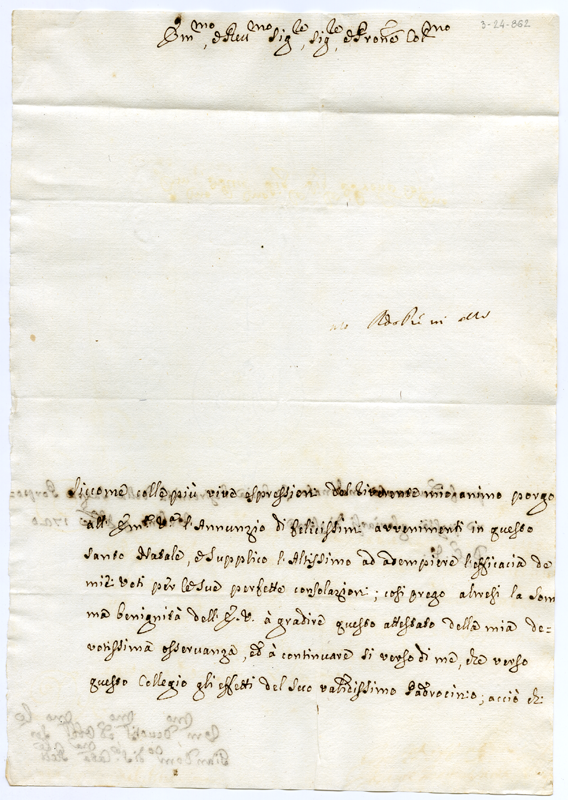 3-24-862
Em.mo, e Reu.mo Sig.re, Sig.re, e Prone Col.mo
Siccome colle più vive espressioni del riverente mio animo porgo
all' Em.za V.ra l'Annunzio di felicissimi avvenimenti in questo
santo Natale, e supplico l'Altissimo ad adempiere l'efficacia de
miei voti per le sue perfette consolazioni; così prego altresì la som
ma benignità dell' E. V. à gradire questo attestato della mia de-
votissima osservanza, ed à continuare sì verso di me, che verso
questo Collegio gli effetti del suo validissimo Padrocinio; acciò che